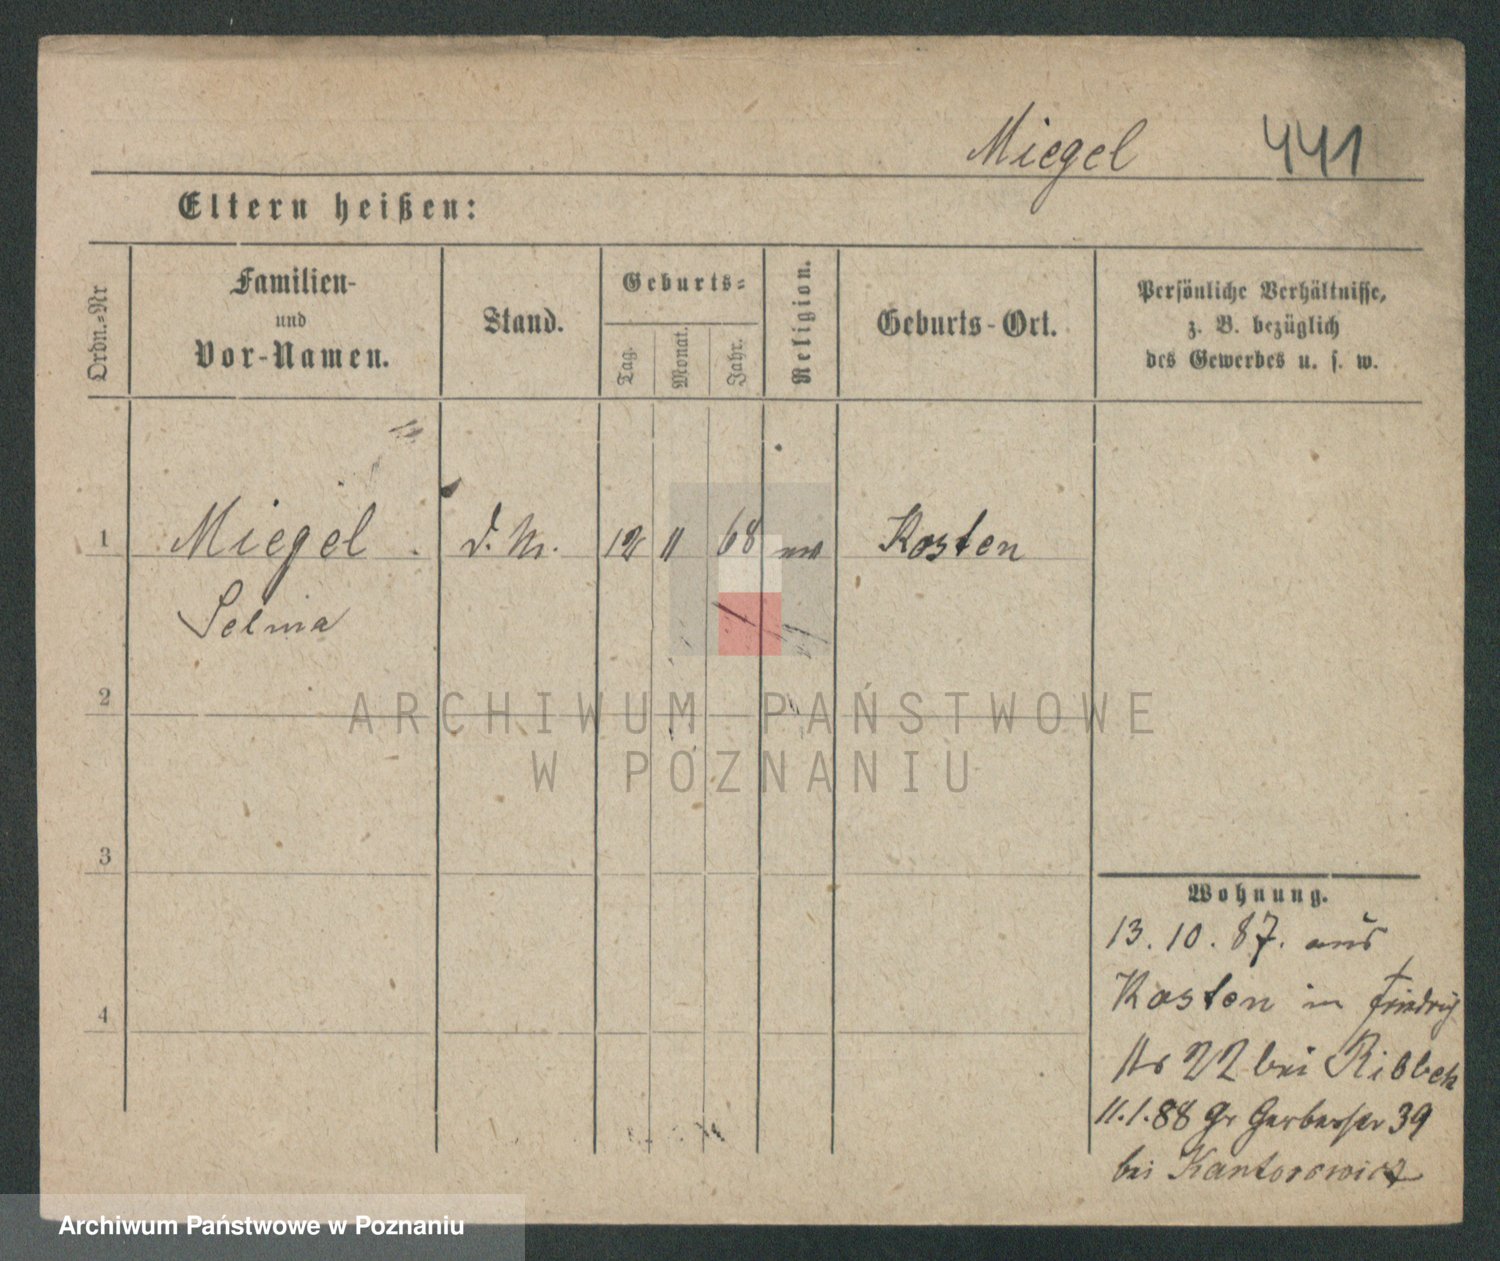 Miegel 441
Eltern heißen:
Ordn.-Nr
Familien-
und
Vor-Namen.
Stand.
Geburts-
Tag.
Monat.
Jahr.
Religion.
Geburts-Ort.
Persönliche Verhältnisse,
z. B. bezüglich
des Gewerbes u. s. w.
1 Miegel d. M. 12 11 68 Kosten
Selma
2
3
4
ARCHIWUM PAŃSTWOWE
W POZNANIU
Wohnung.
13. 10. 87. aus
Kosten in Friedrich
Nr 22 bei Ribbeck
11.1.88 Gr Gerberstr 39
bei Kantorowicz
Archiwum Państwowe w Poznaniu